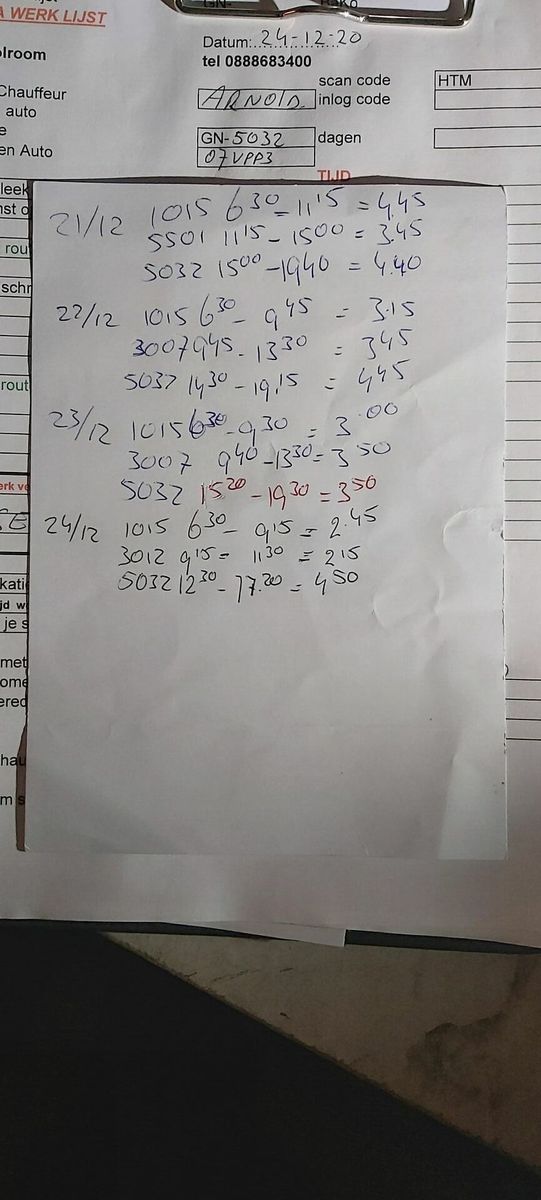 A WERK LIJST
Datum: 24-12-20
tel 0888683400
olroom
scan code HTM
Chauffeur ARNOLD. inlog code
auto
e GN-5032 dagen
en Auto 07VPP3
TIJD
21/12 1015 6 30 - 11 15 = 4.45
5501 11 15 - 15 00 = 3.45
5032 15 00 - 19 40 = 4.40
22/12 1015 6 30 - 9 45 = 3.15
3007 9 45 - 13 30 = 3 45
5037 14 30 - 19.15 = 4 45
23/12 1015 6 30 - 9 30 = 3.00
3007 9 40 - 13 30 = 3 50
5032 15 20 - 19 30 = 3 50
24/12 1015 6 30 - 9 15 = 2.45
3012 9 15 - 11 30 = 2 15
5032 12 30 - 17.20 = 4 50
leek
nst o
rou
schr
rout
erk ve
kati
jd w
je s
met
ome
ered
hau
m s